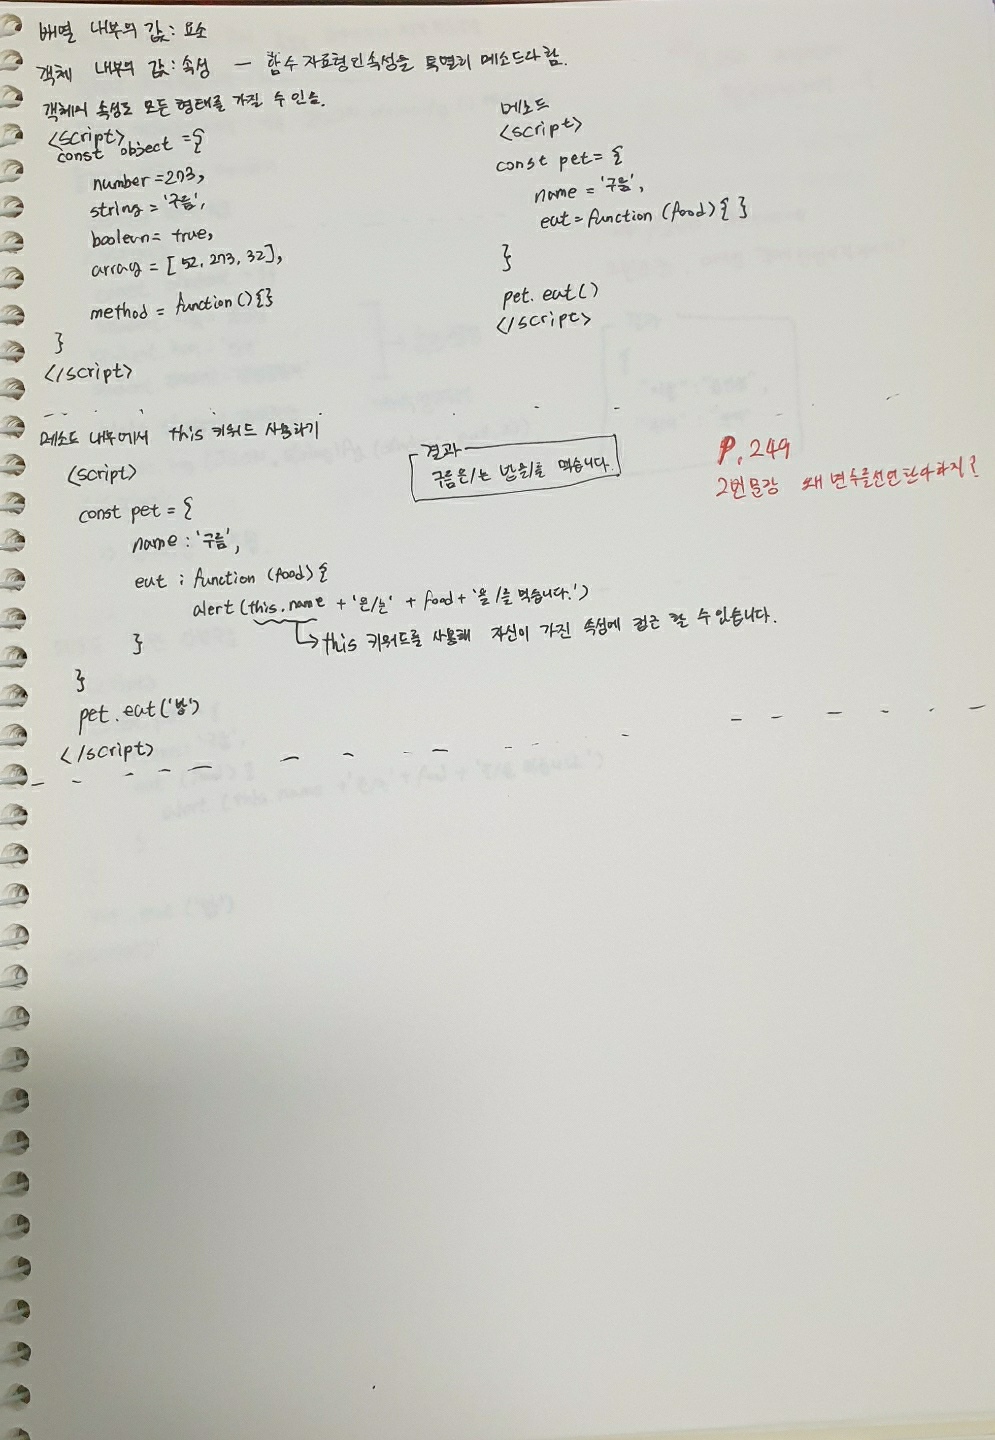 배열 내부의 값: 요소
객체 내부의 값: 속성 — 함수 자료형인 속성을 특별히 메소드라 함.
객체의 속성도 모든 형태를 가질 수 있음.
<script>
const object = {
number = 273,
string = '구름',
boolean = true,
array = [52, 273, 32],
method = function () {}
}
</script>
메소드
<script>
const pet = {
name = '구름',
eat = function (food) { }
}
pet. eat ()
</script>
메소드 내부에서 this 키워드 사용하기
<script>
const pet = {
name : '구름',
eat : function (food) {
alert (this. name + '은/는' + food + '을/를 먹습니다.')
this 키워드를 사용해 자신이 가진 속성에 접근 할 수 있습니다.
}
}
pet. eat ('밥')
</script>
결과
구름은/는 밥을/를 먹습니다.
P. 249
2번 문장 왜 변수를 선언